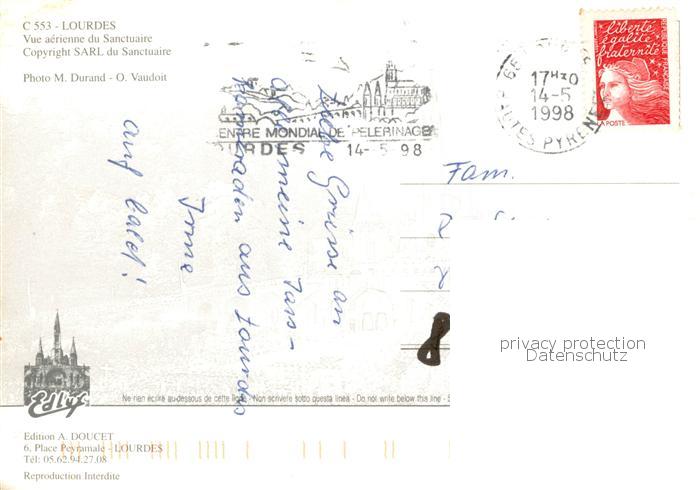 C 553 - LOURDES
Vue aérienne du Sanctuaire
Copyright SARL du Sanctuaire
Photo M. Durand - O. Vaudoit
CENTRE MONDIAL DE PELERINAGE
LOURDES 14-5 98
17H30
14-5
1998
HAUTES PYRENEES
liberté
égalité
fraternité
LA POSTE
Liebe Grüsse an
alle meine Tass-
Kameraden aus Lourdes
Irme
auf bald!
Fam.
8
privacy protection
Datenschutz
Ne rien écrire au-dessous de cette ligne - Non scrivere sotto questa linea - Do not write below this line -
Edition A. DOUCET
6, Place Peyramale - LOURDES
Tél: 05.62.94.27.08
Reproduction Interdite